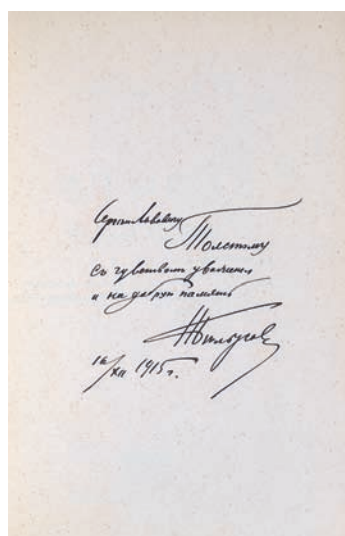 Сергею Львовичу
Толстому
съ чувствомъ уваженія
и на добрую память
16/XII 1915 г.